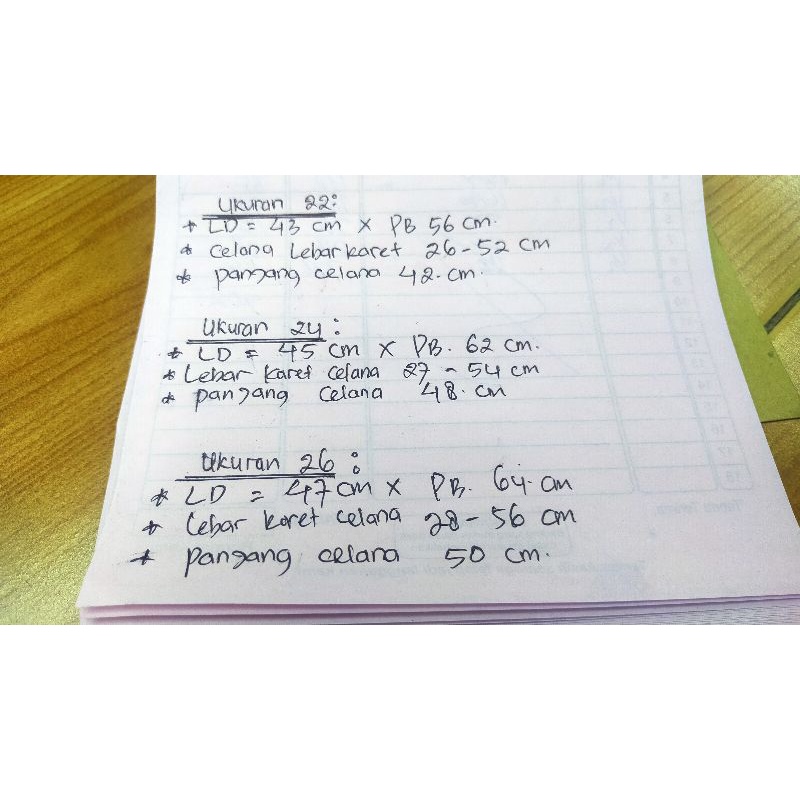 Ukuran 22:
* LD = 43 cm X PB 56 cm.
* Celana Lebar karet 26 - 52 cm
* panjang celana 42. cm.
Ukuran 24:
* LD = 45 cm X PB. 62 cm.
* Lebar karet celana 27 - 54 cm
* panjang celana 48. cm
Ukuran 26:
* LD = 47 cm X PB. 64. cm
* Lebar karet celana 28 - 56 cm
* panjang celana 50 cm.